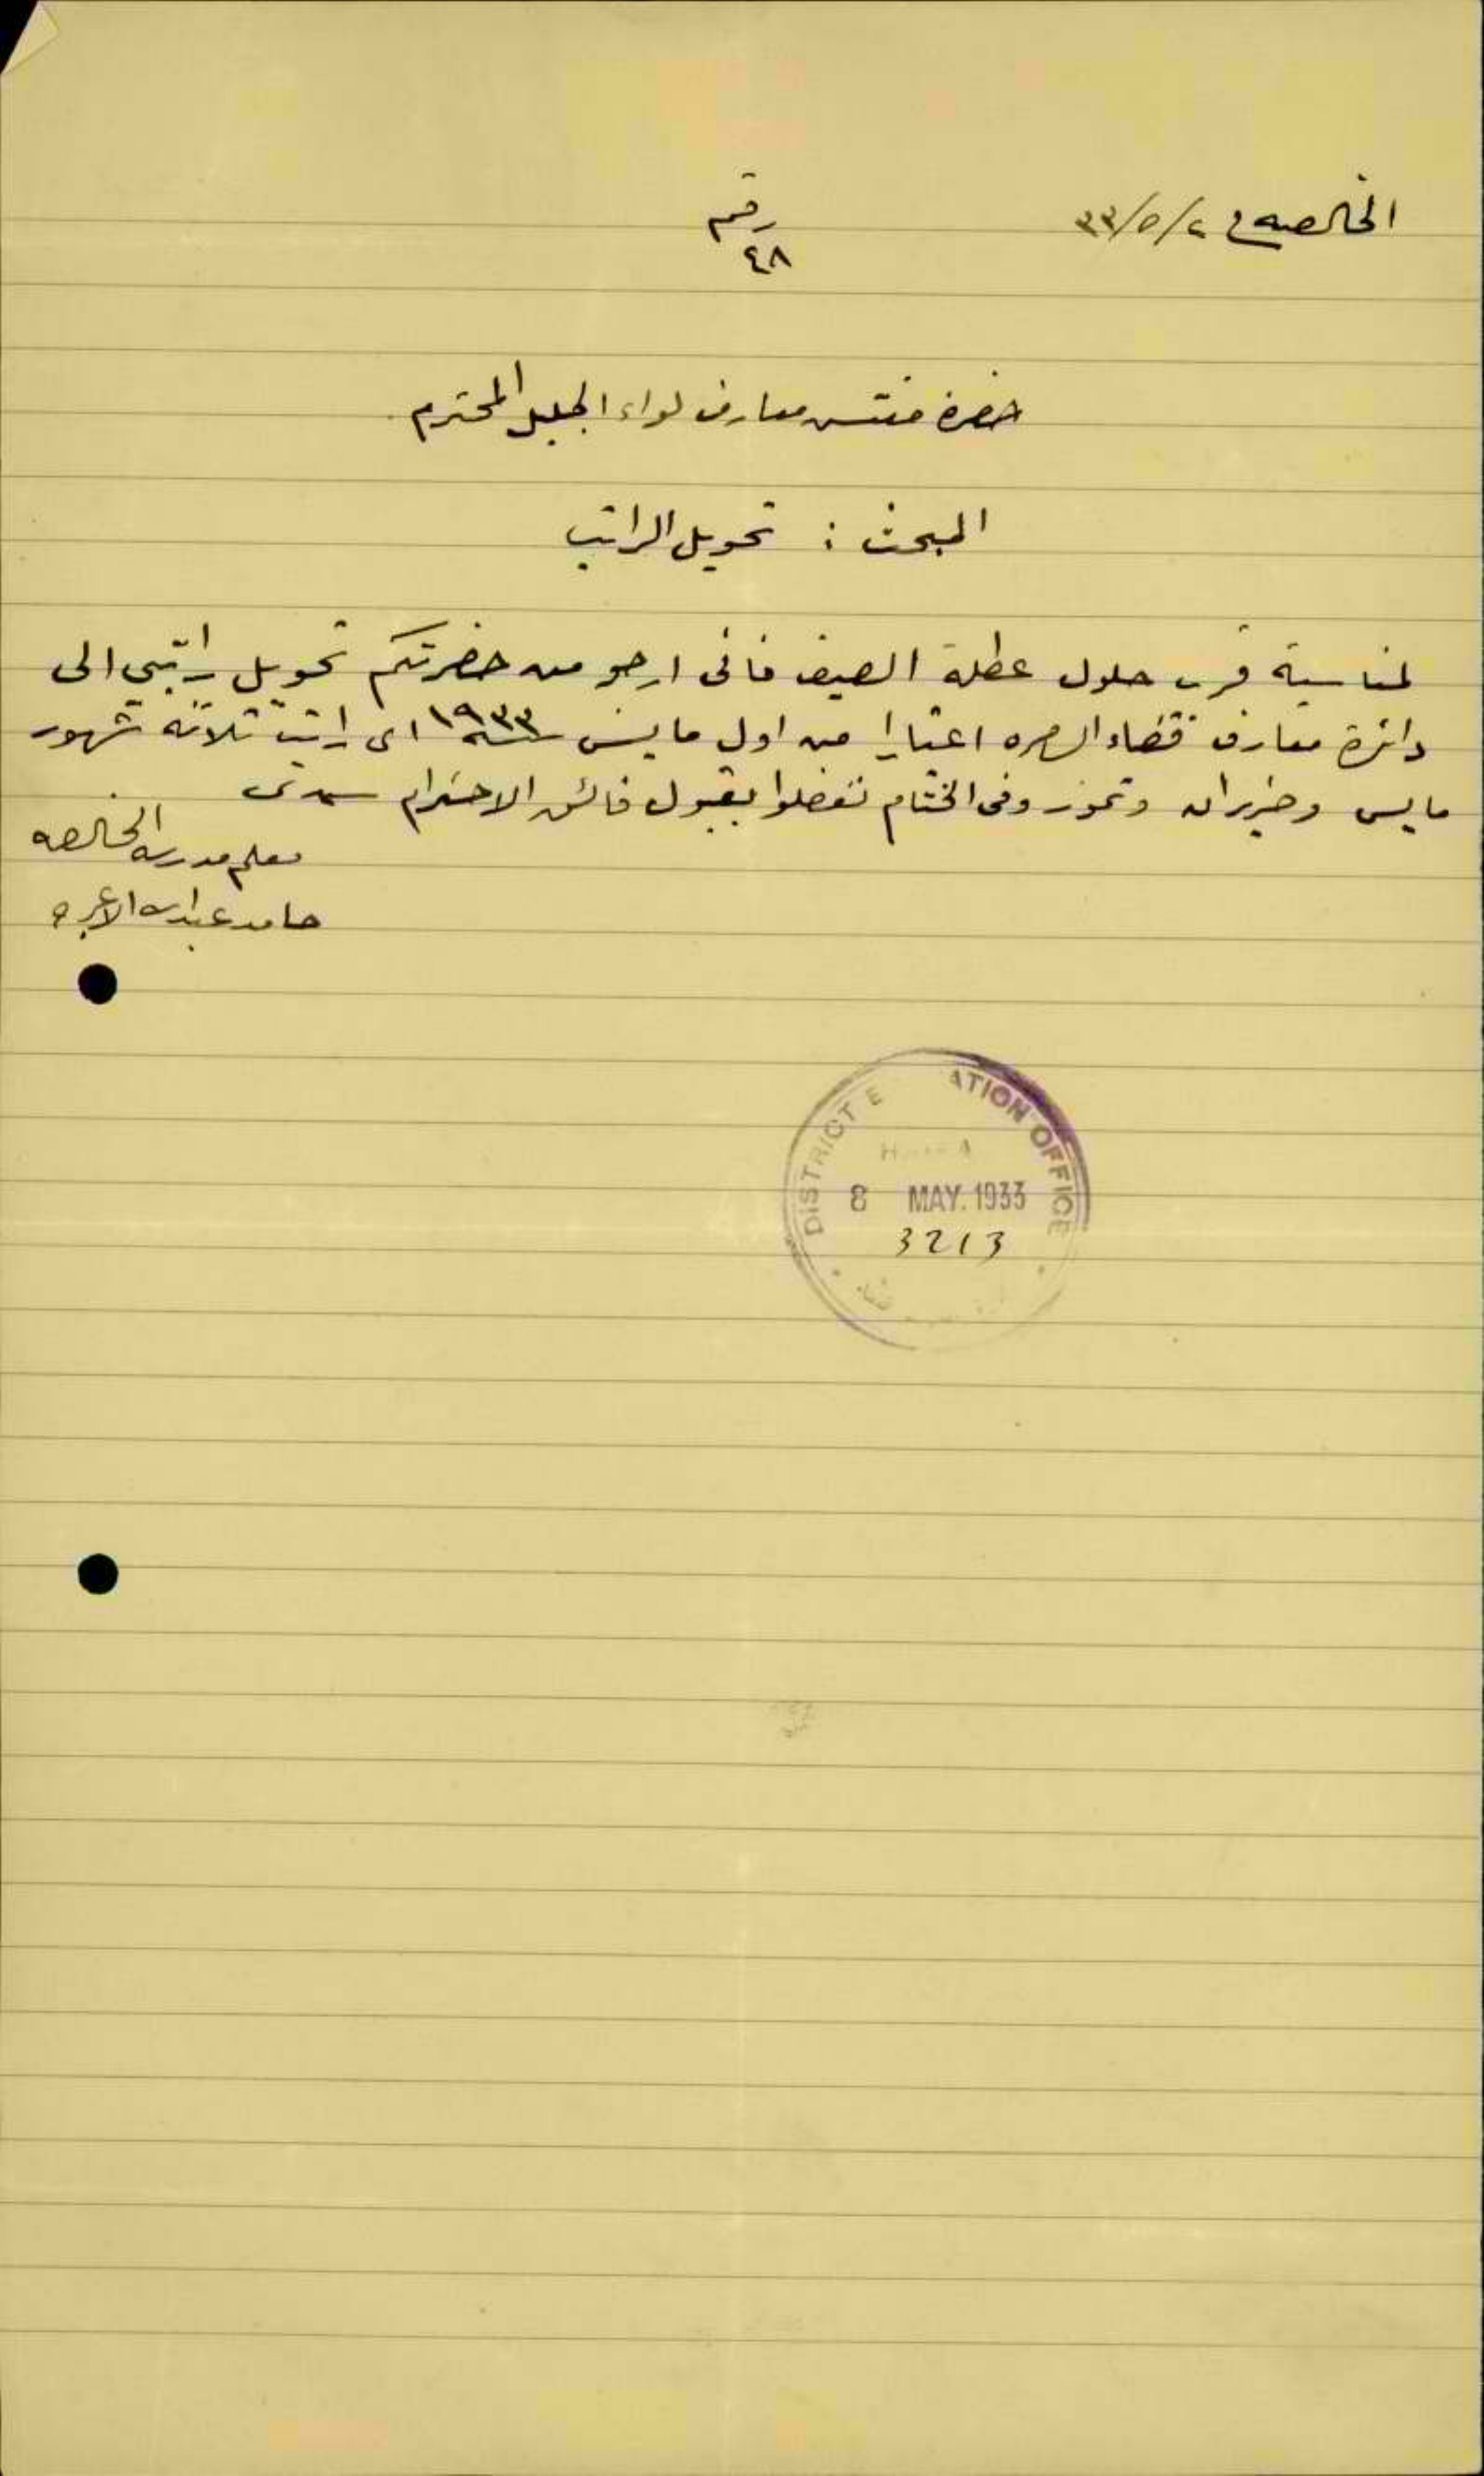 الخالصه في ٢/٥/٣٣
رقم
٤٨
حضرة مفتش معارف لواء الجليل المحترم
المبحث : تحويل الراتب
لمناسبة قرب حلول عطلة الصيف فانى ارجو من حضرتكم تحويل راتبي الى
دائرة معارف قضاء الناصره اعتبارا من اول مايس سنة ١٩٣٣ اى راتب ثلاثة شهور
مايس وحزيران وتموز وفى الختام تفضلوا بقبول فائق الاحترام سيدى
معلم مدرسة الخالصه
حامد عبدالله
DISTRICT E ATION OFFICE
8 MAY. 1933
3213